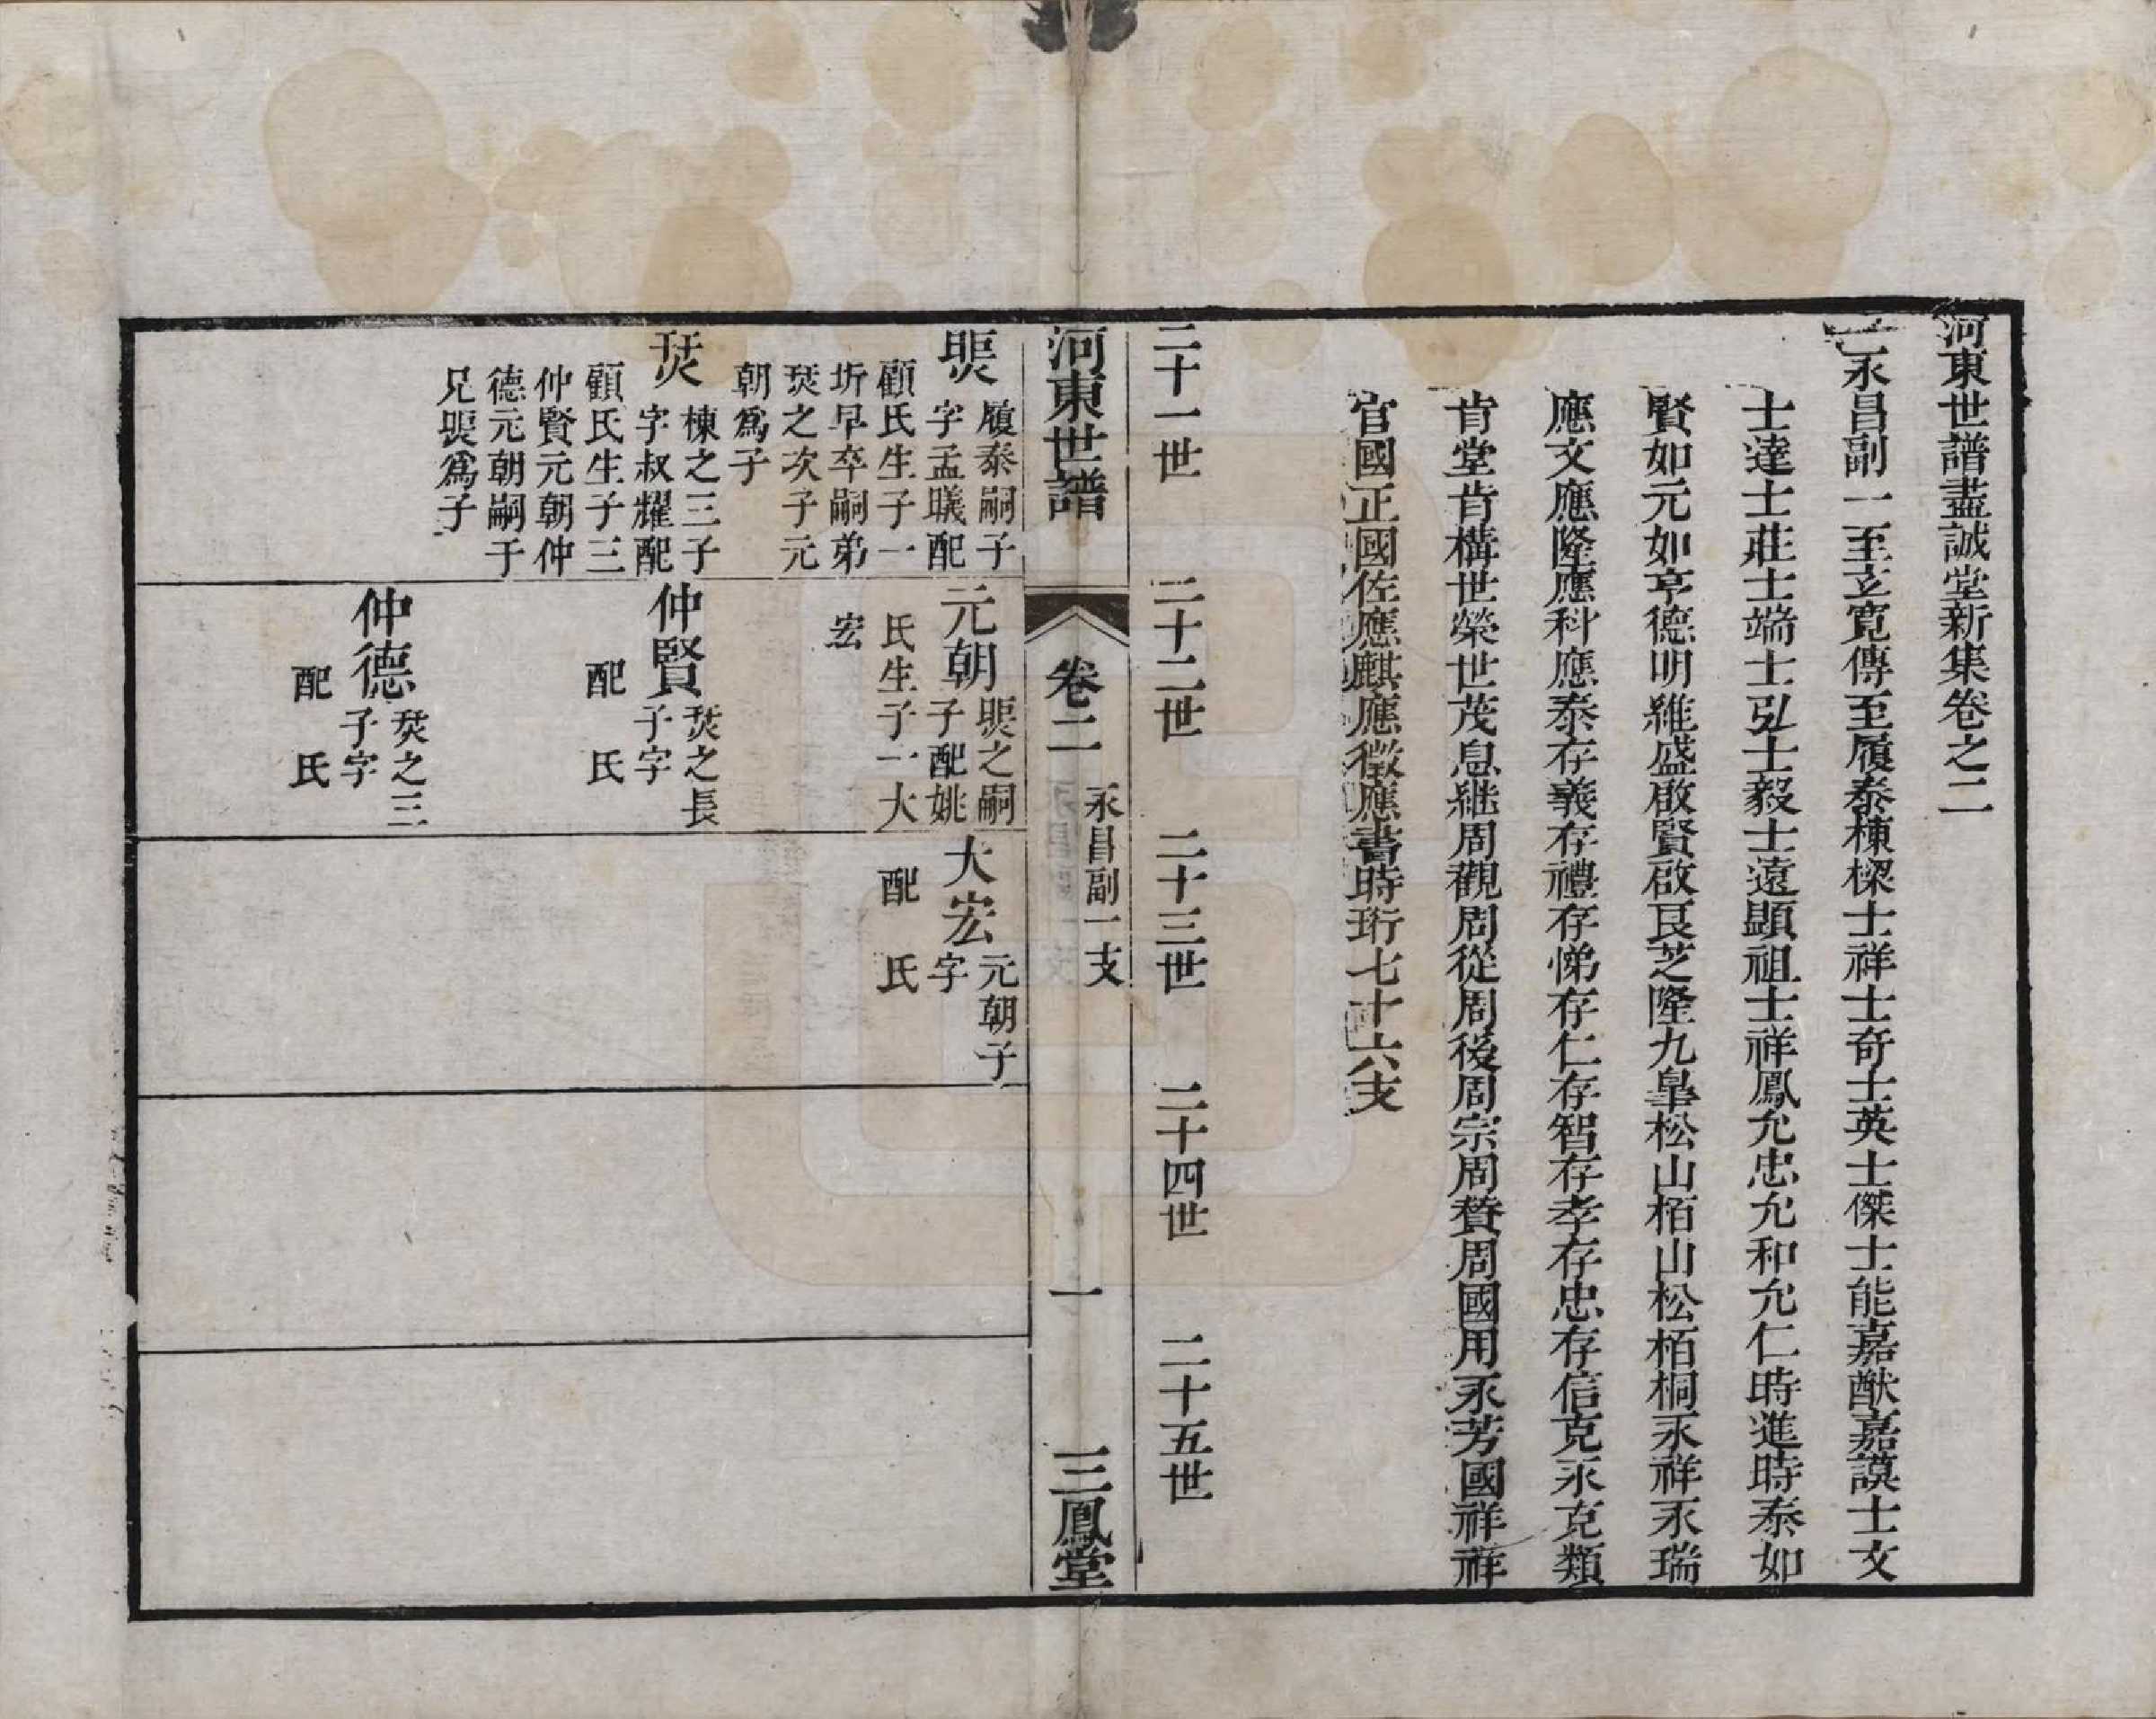 河東世譜盡誠堂新集卷之二
永昌副一至立寛傳至履泰棟樑士祥士奇士英士傑士能嘉猷嘉謨士文
士達士莊士端士弘士毅士遠顯祖士祥鳳允忠允和允仁時進時泰如
賢如元如亨德明維盛啟賢啟良芝隆九臯松山栢山松栢桐永祥永瑞
應文應隆應科應泰存義存禮存悌存仁存智存孝存忠存信克永克類
肯堂肯構世榮世茂息継周觀周從周後周宗周贊周國用永芳國祥祥
官國正國佐應麒應徵應書時珩七十六支
二十一世 二十二世 二十三世 二十四世 二十五世
河東世譜 卷二 永昌副一支 一 三鳳堂
履泰嗣子
字孟曦配
顧氏生子一
圻早卒嗣弟
焋之次子元
朝爲子
棟之三子
字叔耀配
顧氏生子三
仲賢元朝仲
德元朝嗣于
兄㬓爲子
元朝
之嗣
子配姚
氏生子一大
宏
仲賢
之長
子字
配 氏
仲德
之三
子字
配 氏
大宏
元朝子
字
配 氏